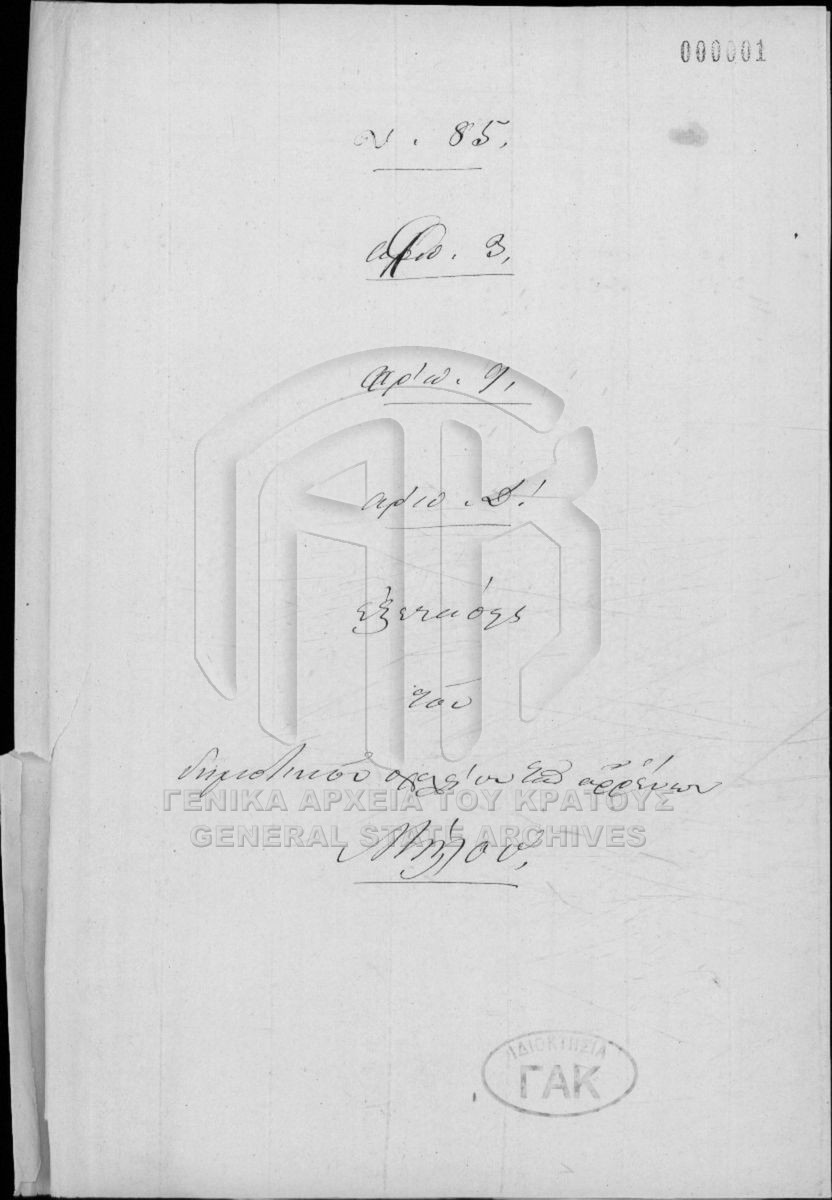 000001
85.
αριθ. 3.
αριθ.
αριθ. Δ!
ἐξετάσεις
τοῦ
δημοτικοῦ σχολείου τῶν ἀῤῥένων
ΓΕΝΙΚΑ ΑΡΧΕΙΑ ΤΟΥ ΚΡΑΤΟΥΣ
GENERAL STATE ARCHIVES
Μήλου,
ΙΔΙΟΚΤΗΣΙΑ
ΓΑΚ